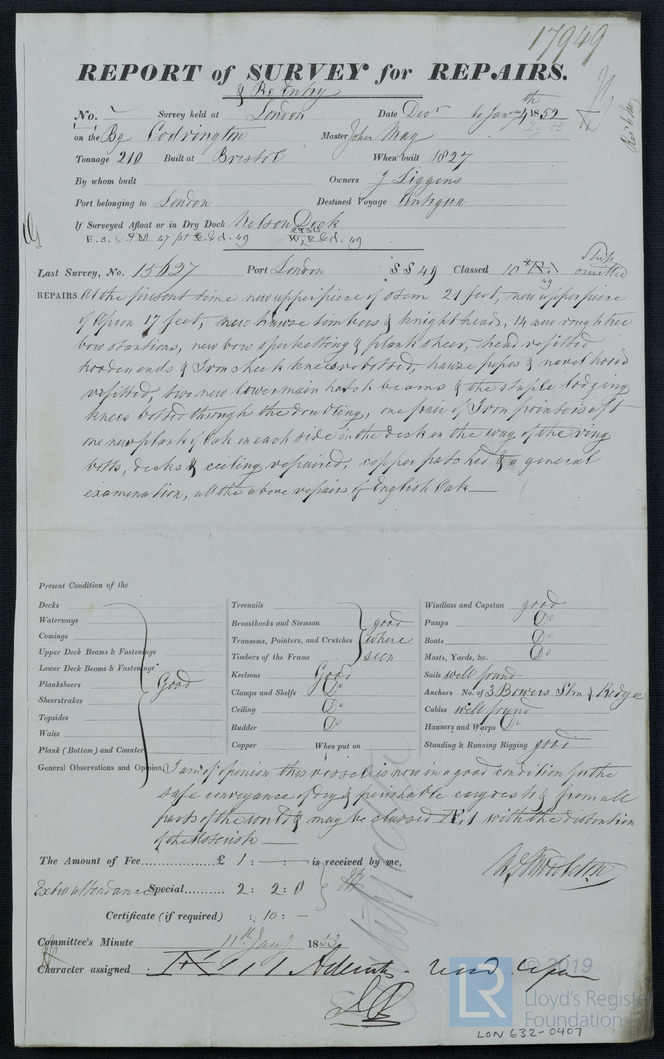 17949
REPORT of SURVEY for REPAIRS.
& Re Entry
No. Survey held at London Date Decr to Jany 4th 1852
on the Bg Codrington Master John May
Tonnage 210 Built at Bristol When built 1827
By whom built Owners J Liggins
Port belonging to London Destined Voyage Antigua
If Surveyed Afloat or in Dry Dock Nelson Dock
Last Survey, No. 15627 Port London SS 49 Classed 10 omitted
REPAIRS At the present time new upper piece of stem 21 feet, new upper piece
of Apron 17 feet, new hawse timbers & knightheads, 14 new roughtree
bow stantions, new bow sperketting & planksheer, head refitted
hooden ends & Iron sheets knees rebolted, hawse pipes & navel hoods
refitted, two new lower main hatch beams & the staple lodging
knees bolted through the doubling, one pair of Iron pointers aft
one new plank of Oak in each side in the deck in the way of the ring
bolts, decks & ceiling repaired, copper patched & a general
examination, all the above repairs of English Oak
Present Condition of the
Decks
Waterways
Comings
Upper Deck Beams & Fastenings
Lower Deck Beams & Fastenings
Planksheers Good
Sheerstrakes
Topsides
Wales
Plank (Bottom) and Counter
Treenails
Breasthooks and Stemson good
Transoms, Pointers, and Crutches where
Timbers of the Frame seen
Keelsons Good
Clamps and Shelfs Do
Ceiling Do
Rudder Do
Copper When put on
Windlass and Capstan good
Pumps Do
Boats Do
Masts, Yards, &c. Do
Sails well found
Anchors No. of 3 Bowers Strm & Kedge
Cables well found
Hawsers and Warps Do
Standing & Running Rigging good
General Observations and Opinion, I am of opinion this vessel is now in a good condition for the
safe conveyance of dry & perishable cargoes to & from all
parts of the world & may be classed Æ, 1 with the distention
of the Asterisk
The Amount of Fee £ 1 : - : - is received by me,
Extra attendance Special 2 : 2 : 0
Certificate (if required) : 10 : -
Committee's Minute 11th Jany 1853
Character assigned
© 2019
LR
Lloyd's Register
Foundation
LON 632-0407